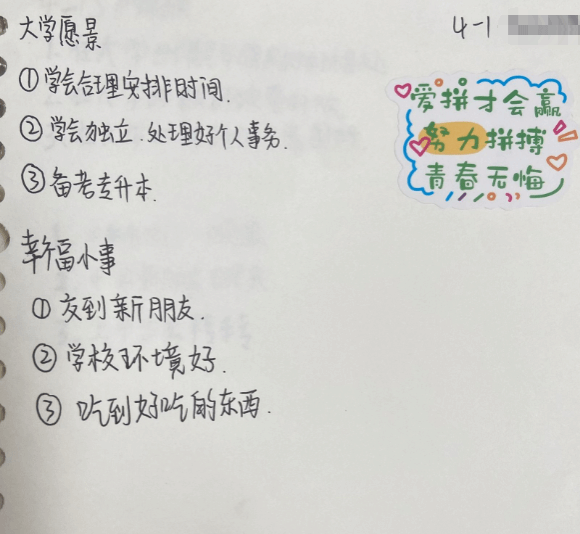 大学愿景
4-1
①学会合理安排时间.
②学会独立.处理好个人事务.
③备考专升本.
爱拼才会赢
努力拼搏
青春无悔
幸福小事
①交到新朋友.
②学校环境好.
③吃到好吃的东西.